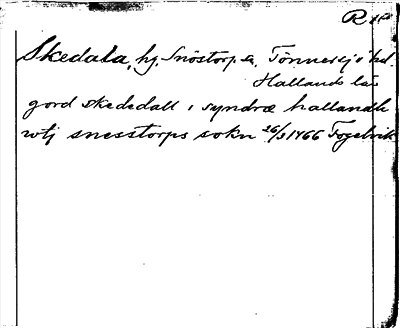 Skedala, hj. Snöstorp sn, Tönnersjö hd.
Hallands län
gord skededall i syndræ hallandh
wtj snesstorps sokn 26/3 1466 Fogelvik